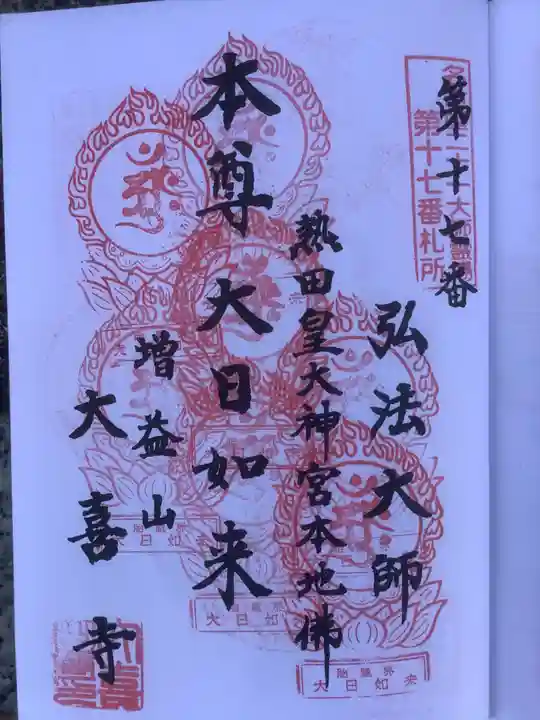 第十七番
第十七番札所
弘法大師
熱田皇大神宮本地佛
本尊大日如来
増益山
大喜寺
胎蔵界
大日如来
大日如来
胎蔵界
大日如来